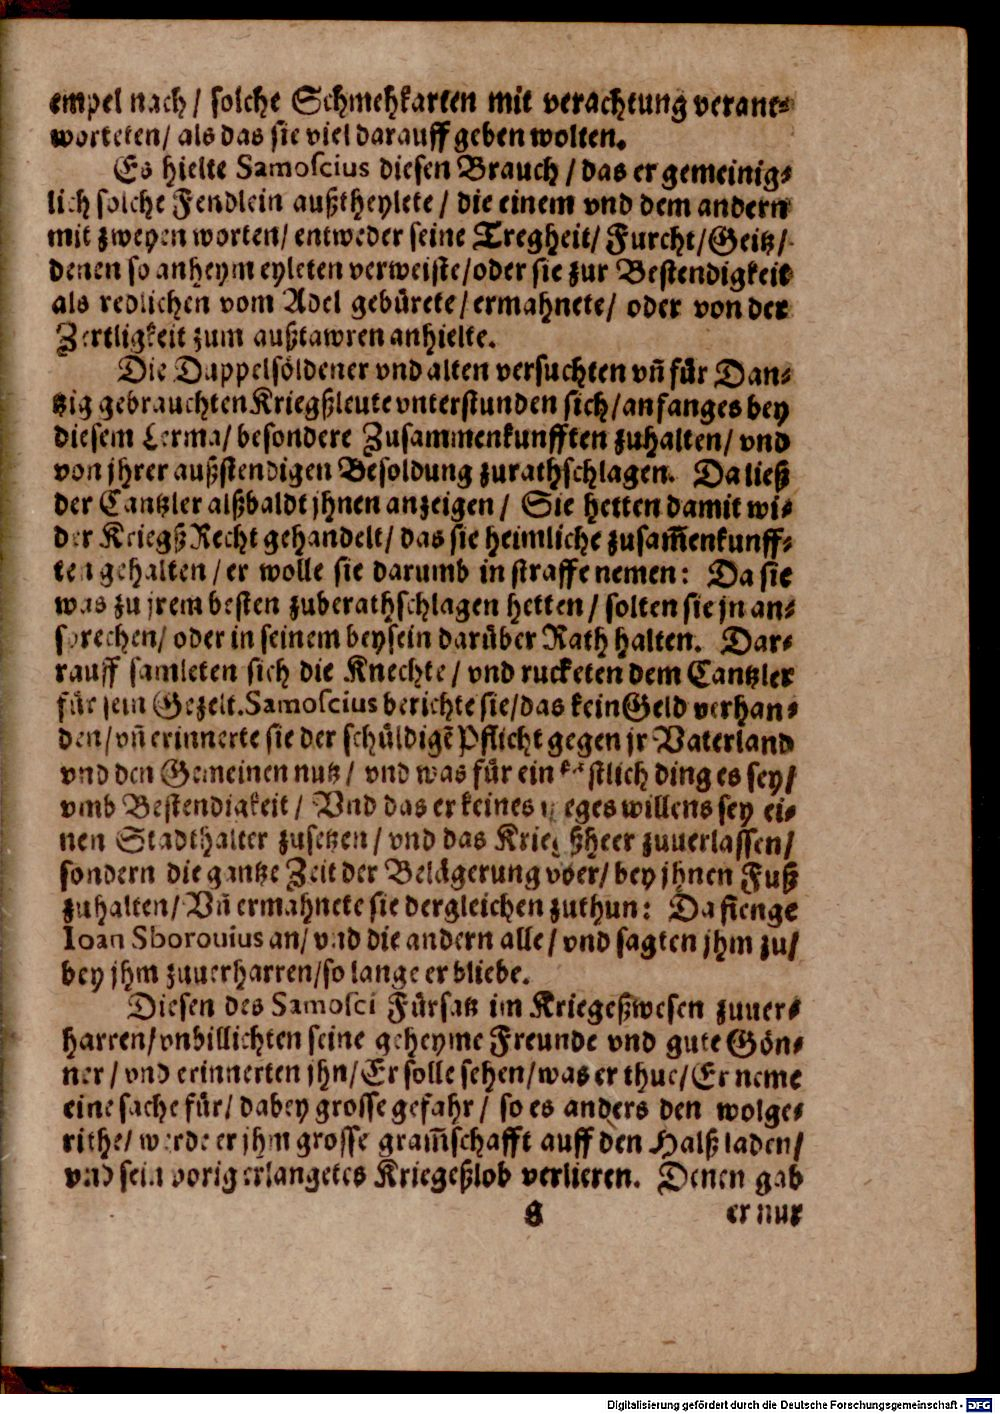 empel nach / solche Schmehkarten mit verachtung verant⸗
worteten / als das sie viel darauff geben wolten.
Es hielte Samoscius diesen Brauch / das er gemeinig⸗
lich solche Fendlein außtheylete / die einem vnd dem andern
mit zweyen worten / entweder seine Tregheit / Furcht / Geitz /
denen so anheym eyleten verweiste / oder sie zur Bestendigkeit
als redlichen vom Adel gebürete / ermahnete / oder von der
Zertligkeit zum außtawren anhielte.
Die Duppelsöldener vnd alten versuchten vñ für Dan⸗
tzig gebrauchten Kriegßleute vnterstunden sich / anfanges bey
diesem Lerma / besondere Zusammenkunfften zuhalten / vnd
von jhrer außstendigen Besoldung zurathschlagen. Da ließ
der Cantzler alßbaldt jhnen anzeigen / Sie hetten damit wi⸗
der Kriegß Recht gehandelt / das sie heimliche zusam̃enkunff⸗
ten gehalten / er wolle sie darumb in straffe nemen: Da sie
was zu jrem besten zuberathschlagen hetten / solten sie jn an⸗
sprechen / oder in seinem beysein darüber Rath halten. Dar⸗
rauff samleten sich die Knechte / vnd rucketen dem Cantzler
für sein Gezelt. Samoscius berichte sie / das kein Geld verhan⸗
den / vñ erinnerte sie der schüldigẽ Pflicht gegen jr Vaterland
vnd den Gemeinen nutz / vnd was für ein ding es sey /
vmb Bestendigkeit / Vnd das er keines weges willens sey ei⸗
nen Stadthalter zusetzen / vnd das Kriegßheer zuuerlassen /
sondern die gantze Zeit der Belägerung vber / bey jhnen Fuß
zuhalten / Vñ ermahnete sie dergleichen zuthun: Da fienge
Ioan Sborouius an / vnd die andern alle / vnd sagten jhm zu /
bey jhm zuuerharren / so lange er bliebe.
Diesen des Samosci Fürsatz im Kriegeßwesen zuuer⸗
harren / vnbillichten seine geheyme Freunde vnd gute Gön⸗
ner / vnd erinnerten jhn / Er solle sehen / was er thue / Er neme
eine sache für / dabey grosse gefahr / so es anders den wolge⸗
rithe / werde er jhm grosse gram̃schafft auff den Halß laden /
vnd sein vorig erlangetes Kriegeßlob verlieren. Denen gab
er nur
Digitalisierung gefördert durch die Deutsche Forschungsgemeinschaft - DFG